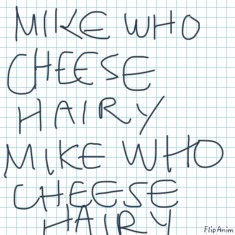 MIKE WHO
CHEESE
HAIRY
MIKE WHO
CHEESE
HAIRY
FlipAnim